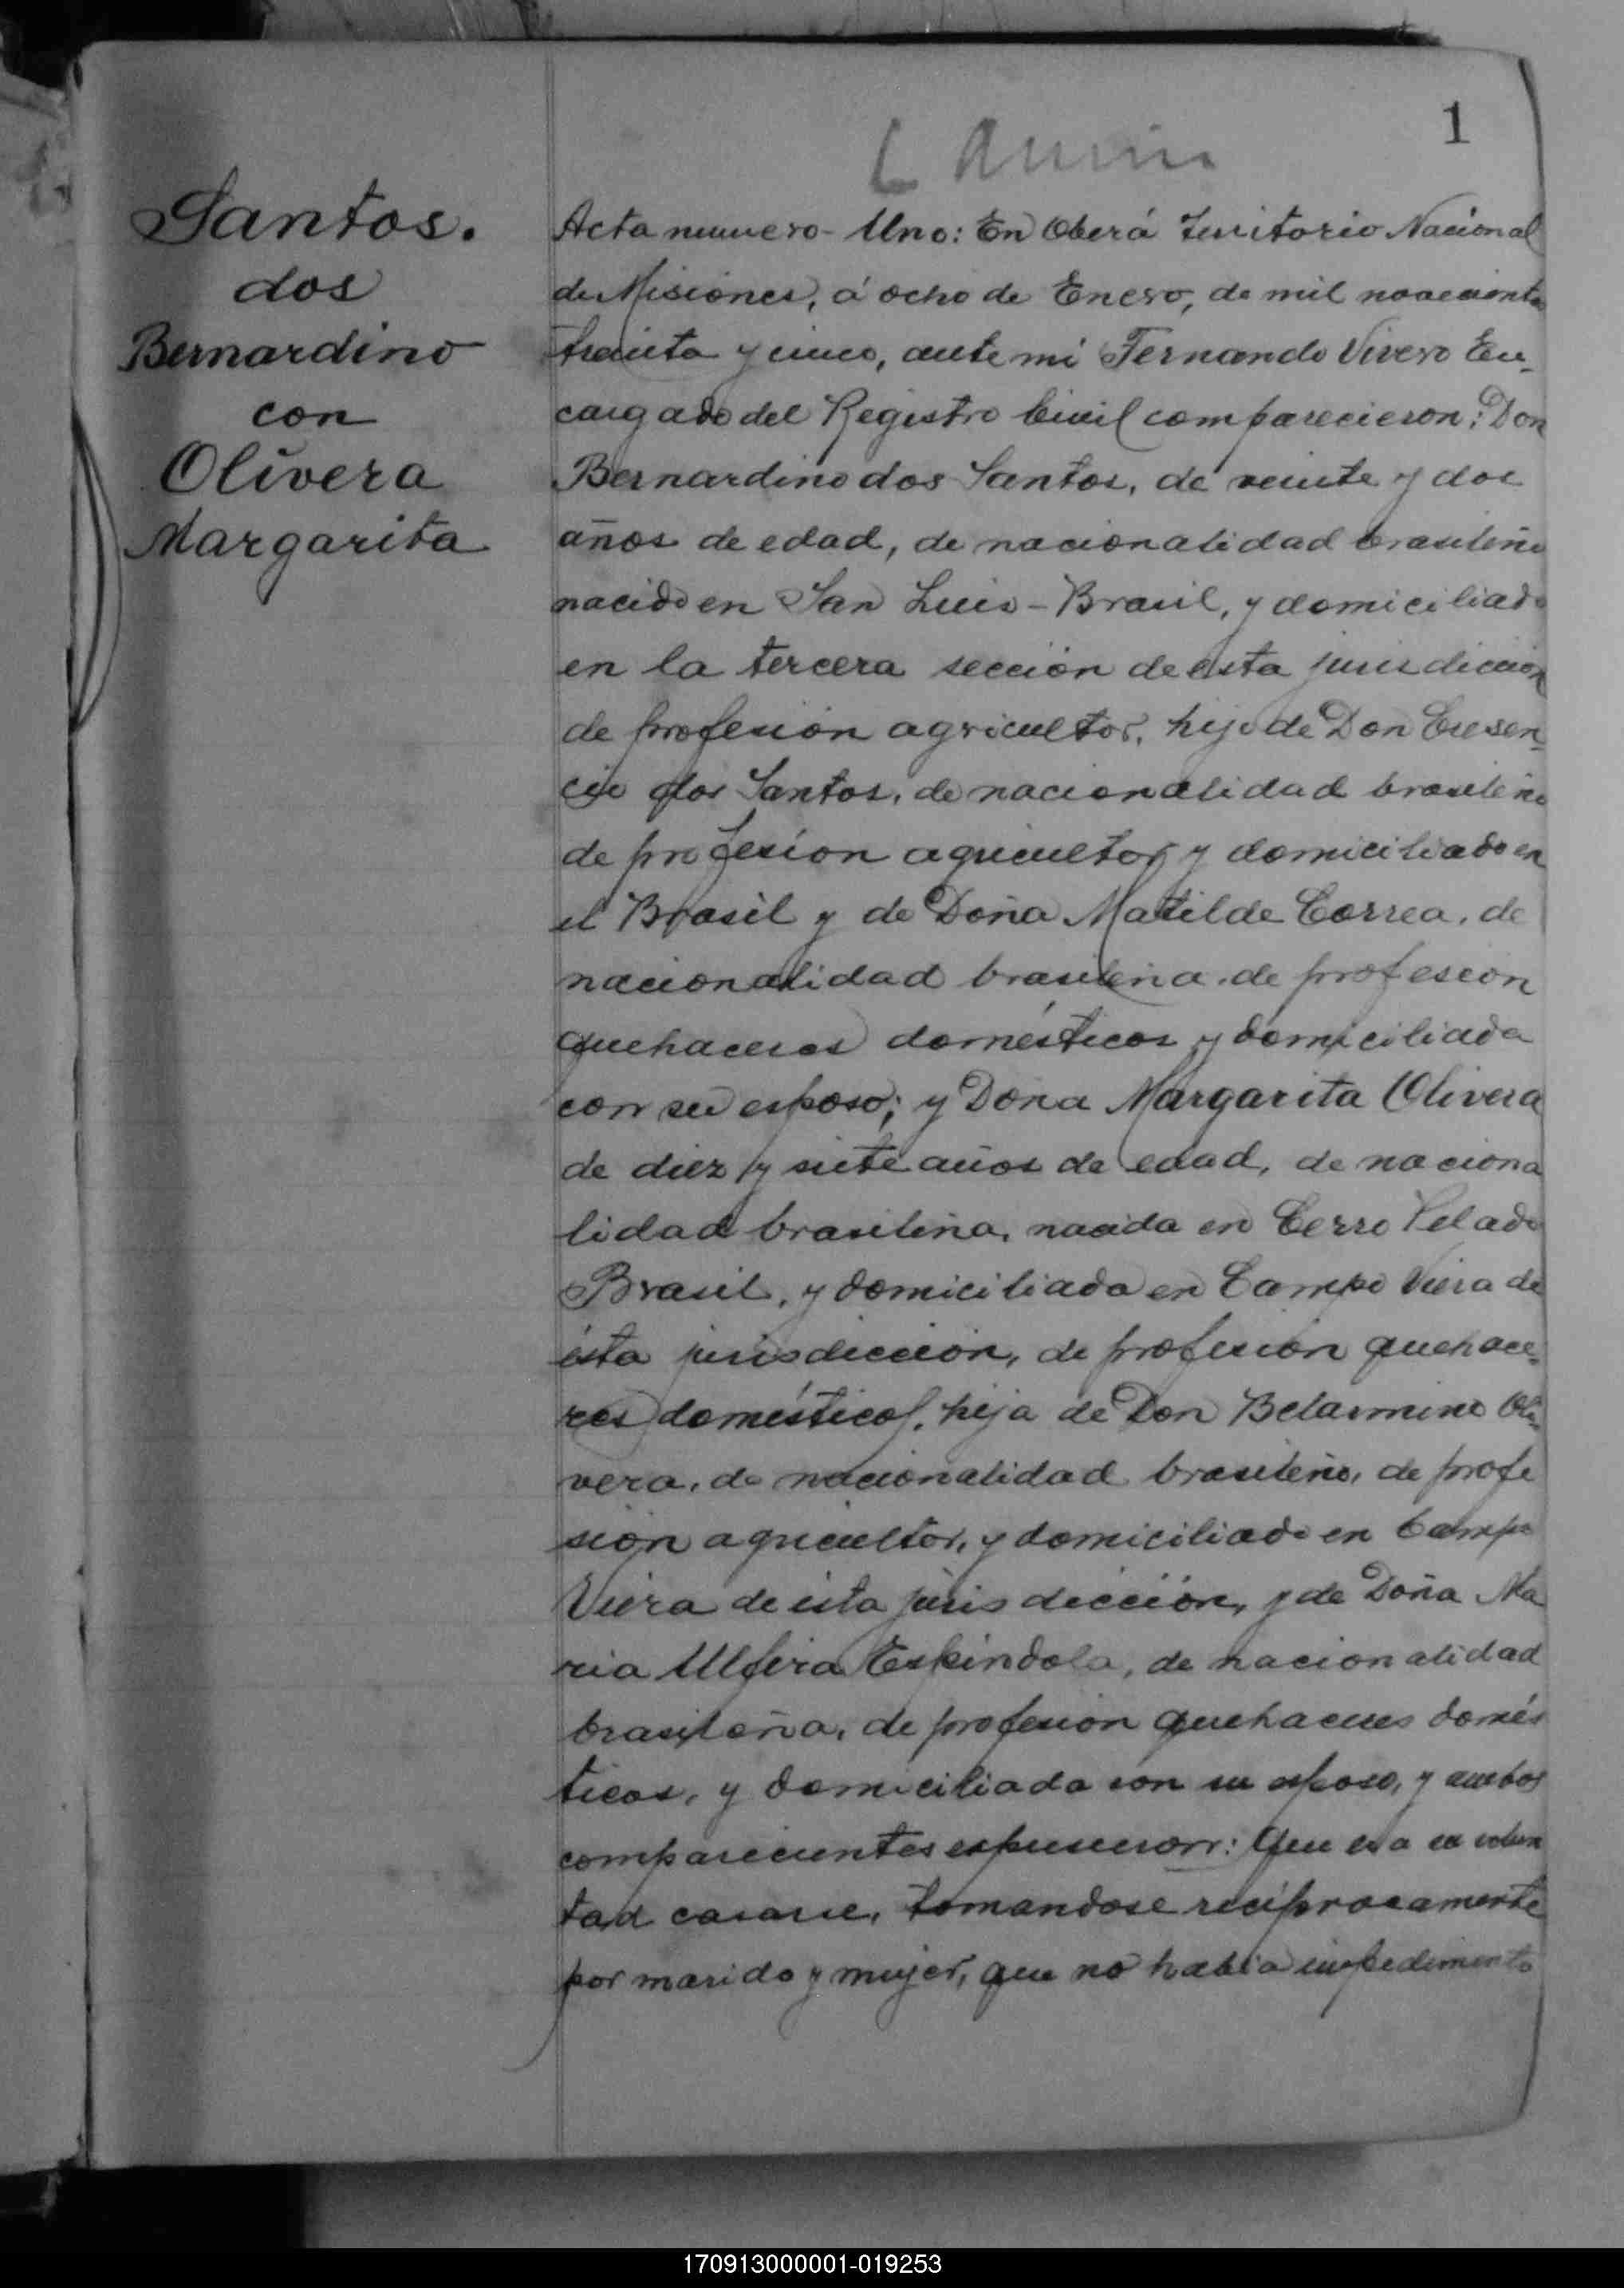 1
Santos.
dos
Bernardino
con
Olivera
Margarita
Acta numero - Uno: En Oberá Territorio Nacional
de Misiones, á ocho de Enero, de mil novecientos
treinta y cinco, ante mi Fernando Vivero En-
cargado del Registro Civil comparecieron: Don
Bernardino dos Santos, de veinte y dos
años de edad, de nacionalidad brasileño
nacido en San Luis - Brasil, y domiciliado
en la tercera sección de esta jurisdicción
de profesión agricultor, hijo de Don Cresen-
cio dos Santos, de nacionalidad brasileño
de profesión agricultor y domiciliado en
el Brasil y de Doña Matilde Correa, de
nacionalidad brasileña, de profesión
quehaceres domésticos y domiciliada
con su esposo; y Doña Margarita Olivera
de diez y siete años de edad, de naciona
lidad brasileña, nacida en Cerro Pelado
Brasil, y domiciliada en Campo Viera de
ésta jurisdicción, de profesión quehace-
res domésticos, hija de Don Belarmino Oli-
vera, de nacionalidad brasileño, de profe
sión agricultor, y domiciliado en Campo
Viera de ésta jurisdicción, y de Doña Ma
ria Ulfira Espindola, de nacionalidad
brasileña, de profesión quehaceres domés
ticos, y domiciliada con su esposo, y ambos
comparecientes expusieron: Que era su volun
tad casarse, tomandose reciprocamente
por marido y mujer, que no habia impedimento
170913000001-019253